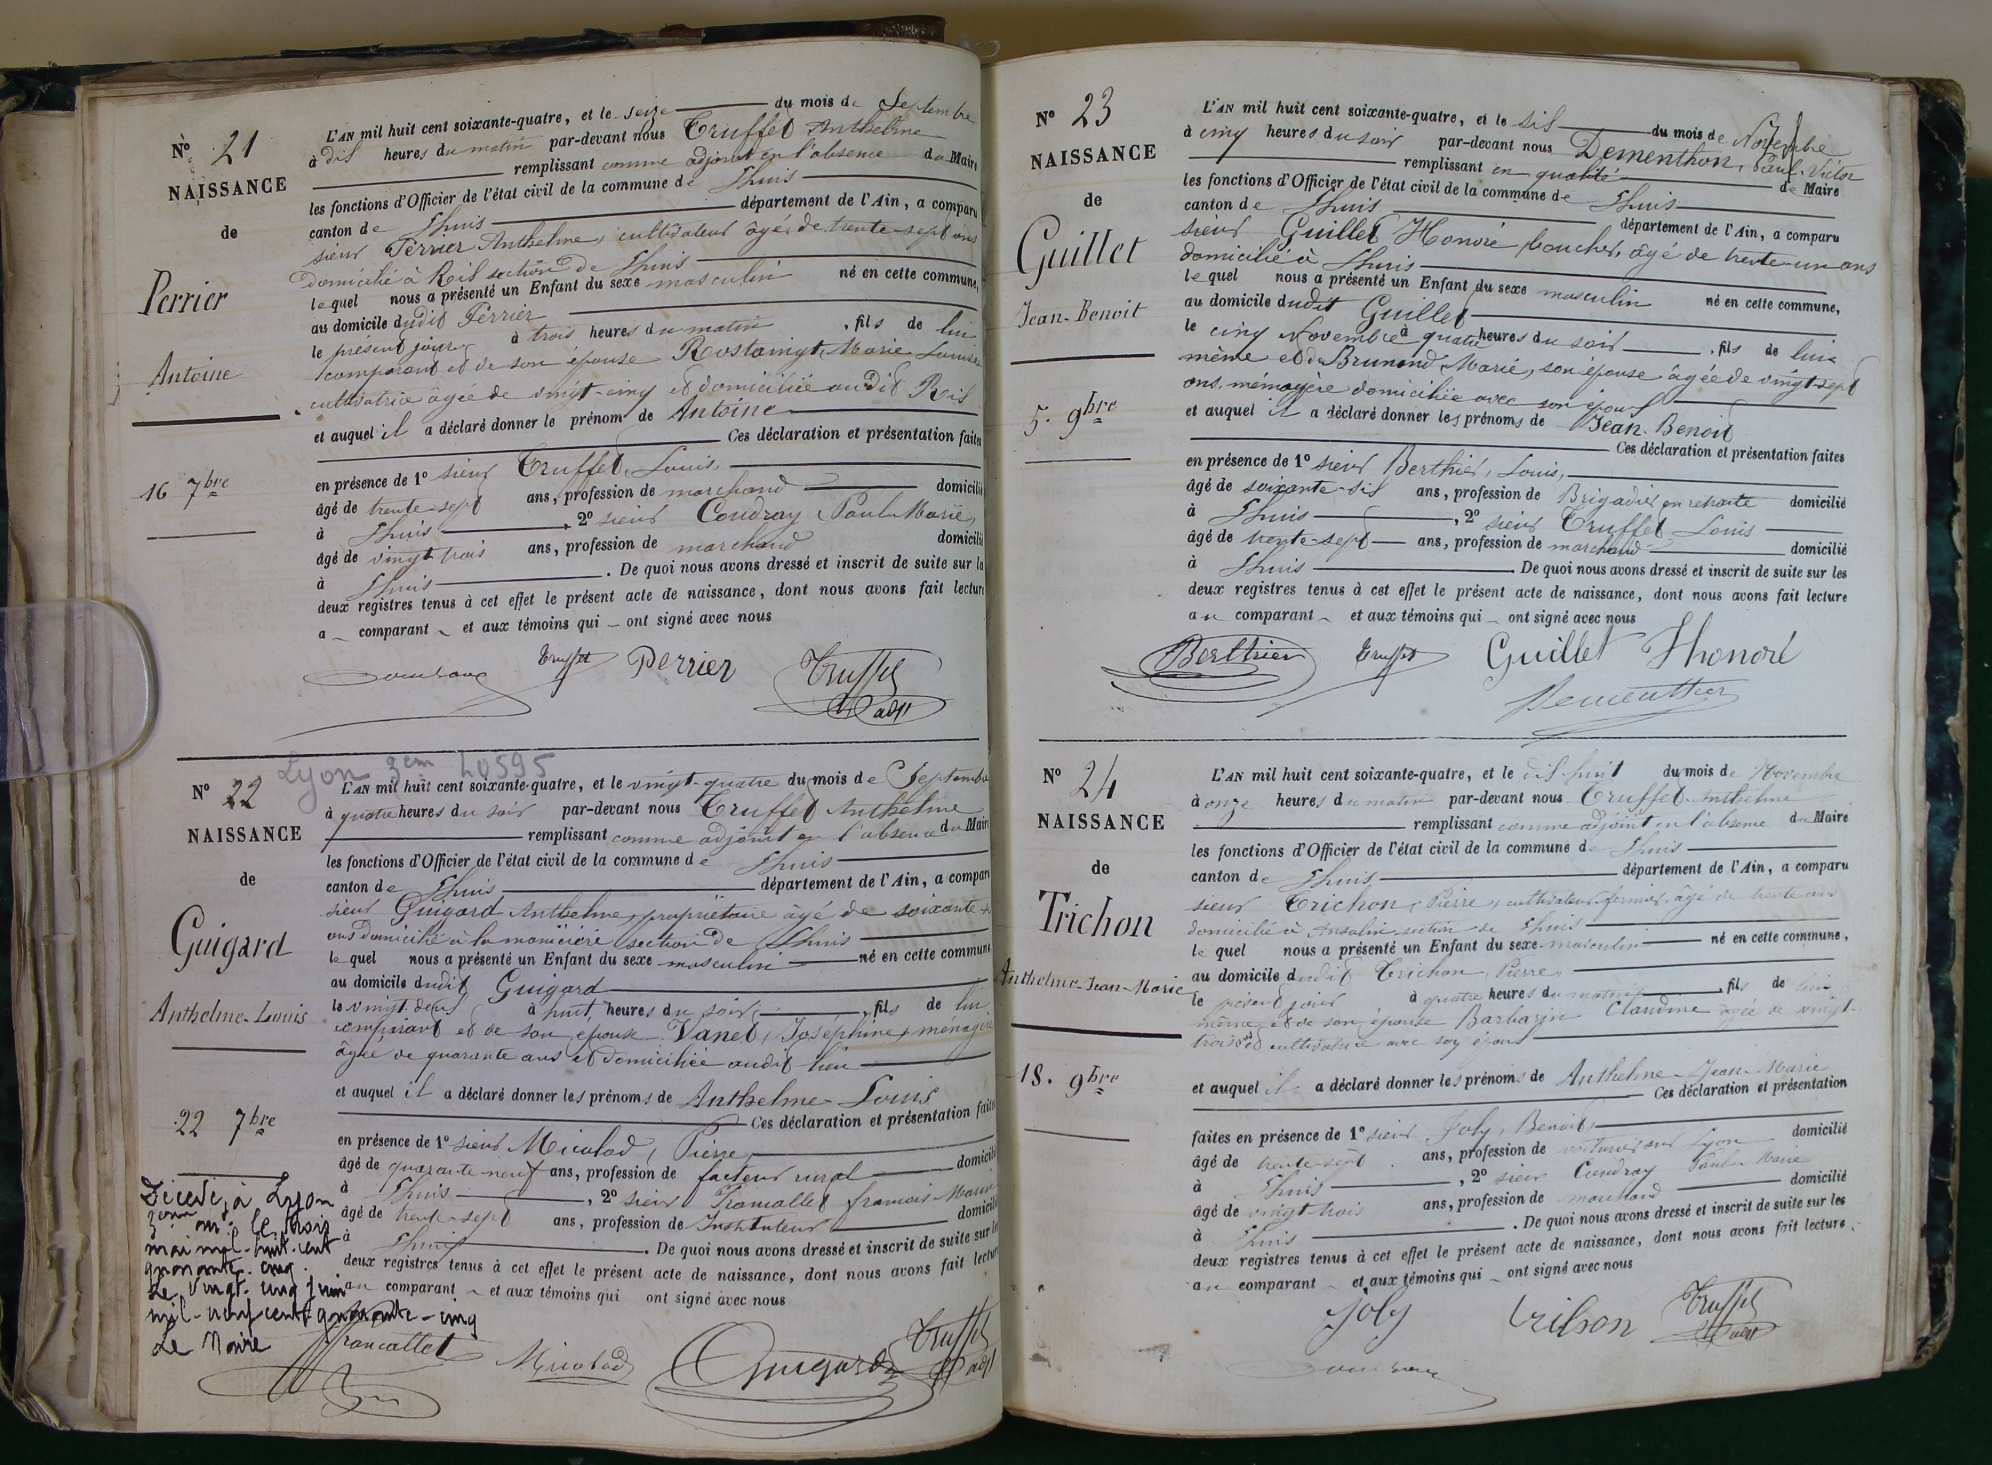 N° 21
NAISSANCE
de
Perrier
Antoine
16 7bre
L'AN mil huit cent soixante-quatre, et le seize du mois de Septembre
à dix heures du matin par-devant nous Truffet Anthelme
remplissant comme adjoint en l'absence du Maire
les fonctions d'Officier de l'état civil de la commune de Lhuis
canton de Lhuis département de l'Ain, a comparu
sieur Perrier Anthelme, cultivateur âgé de trente-sept ans
domicilié à Rix section de Lhuis
lequel nous a présenté un Enfant du sexe masculin né en cette commune,
au domicile dudit Perrier
le présent jour à trois heures du matin, fils de lui
comparant et de son épouse Rostaingt, Marie Louise
cultivatrice âgée de vingt-cinq et domiciliée audit Rix
et auquel il a déclaré donner le prénom de Antoine
Ces déclaration et présentation faites
en présence de 1° sieur Truffet, Louis,
âgé de trente-sept ans, profession de marchand domicilié
à Lhuis, 2° sieur Coudray, Paul-Marie,
âgé de vingt trois ans, profession de marchand domicilié
à Lhuis. De quoi nous avons dressé et inscrit de suite sur la
deux registres tenus à cet effet le présent acte de naissance, dont nous avons fait lecture
a comparant et aux témoins qui ont signé avec nous
Truffet Perrier Truffet
adjt
Lyon 3em 40595
N° 22
NAISSANCE
de
Guigard
Anthelme-Louis
22 7bre
Décédé à Lyon
3eme arr. le trois
mai mil-huit-cent
quarante-cinq.
Le vingt-cinq juin
mil-neuf cent quarante-cinq
Le Maire
L'AN mil huit cent soixante-quatre, et le vingt-quatre du mois de Septembre
à quatre heures du soir par-devant nous Truffet Anthelme
remplissant comme adjoint en l'absence du Maire
les fonctions d'Officier de l'état civil de la commune de Lhuis
canton de Lhuis département de l'Ain, a comparu
sieur Guigard Anthelme, propriétaire âgé de soixante
ans domicilié à la section de Lhuis
lequel nous a présenté un Enfant du sexe masculin né en cette commune
au domicile dudit Guigard
le vingt-deux à huit heures du soir, fils de lui
comparant et de son épouse Vanel, Joséphine, ménagère
âgée de quarante ans et domiciliée audit lieu
et auquel il a déclaré donner les prénoms de Anthelme-Louis
Ces déclaration et présentation faites
en présence de 1° sieur Micolod, Pierre,
âgé de quarante-neuf ans, profession de facteur rural domicilié
à Lhuis, 2° sieur Francallet françois-Marie
âgé de trente-sept ans, profession de Instituteur domicilié
à Lhuis. De quoi nous avons dressé et inscrit de suite sur les
deux registres tenus à cet effet le présent acte de naissance, dont nous avons fait lecture
au comparant et aux témoins qui ont signé avec nous
francallet Micolod Guigard Truffet
adjt
N° 23
NAISSANCE
de
Guillet
Jean-Benoit
5. 9bre
L'AN mil huit cent soixante-quatre, et le six du mois de Novembre
à cinq heures du soir par-devant nous Dementhon, Paul-Victor
remplissant en qualité de Maire
les fonctions d'Officier de l'état civil de la commune de Lhuis
canton de Lhuis département de l'Ain, a comparu
sieur Guillet Honoré boucher, âgé de trente-un ans
domicilié à Lhuis
lequel nous a présenté un Enfant du sexe masculin né en cette commune,
au domicile dudit Guillet
le cinq Novembre à quatre heures du soir, fils de lui
même et de Brunand Marie, son épouse âgée de vingt-sept
ans, ménagère domiciliée avec son époux
et auquel il a déclaré donner les prénoms de Jean-Benoit
Ces déclaration et présentation faites
en présence de 1° sieur Berthier, Louis,
âgé de soixante-six ans, profession de Brigadier en retraite domicilié
à Lhuis, 2° sieur Truffet Louis
âgé de trente-sept ans, profession de marchand domicilié
à Lhuis. De quoi nous avons dressé et inscrit de suite sur les
deux registres tenus à cet effet le présent acte de naissance, dont nous avons fait lecture
au comparant et aux témoins qui ont signé avec nous
Berthier Truffet Guillet Honoré
Dementhon
N° 24
NAISSANCE
de
Trichon
Anthelme-Jean-Marie
18. 9bre
L'AN mil huit cent soixante-quatre, et le dix-huit du mois de Novembre
à onze heures du matin par-devant nous Truffet Anthelme
remplissant comme adjoint en l'absence du Maire
les fonctions d'Officier de l'état civil de la commune de Lhuis
canton de Lhuis département de l'Ain, a comparu
sieur Trichon, Pierre, cultivateur fermier, âgé de trente ans
domicilié à Ansolin section de Lhuis
lequel nous a présenté un Enfant du sexe masculin né en cette commune,
au domicile dudit Trichon, Pierre,
le présent jour à quatre heures du matin, fils de lui
même, et de son épouse Barbarin Claudine âgée de vingt-
trois ans et cultivatrice avec son époux
et auquel il a déclaré donner les prénoms de Anthelme-Jean-Marie
Ces déclaration et présentation
faites en présence de 1° sieur Joly, Benoit,
âgé de trente-sept ans, profession de voiturier sur Lyon domicilié
à Lhuis, 2° sieur Coudray Paul-Marie
âgé de vingt-trois ans, profession de marchand domicilié
à Lhuis. De quoi nous avons dressé et inscrit de suite sur les
deux registres tenus à cet effet le présent acte de naissance, dont nous avons fait lecture
au comparant et aux témoins qui ont signé avec nous
Joly trichon Truffet
adjt